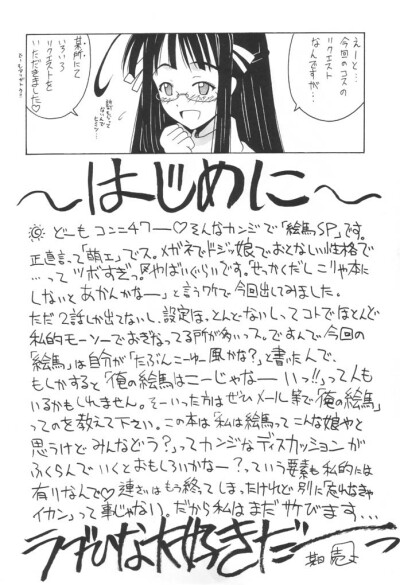 えーと…
今回のコスの
リクエスト
なんですが…
某所にて
いろいろ
リクエストを
いただきました♡
〜はじめに〜
どーもコンニチワー♡そんなカンジで「絵馬SP」です。
正直言って「萌エ」でス。メガネでドジッ娘でおとなしい性格で
…ってツボすぎっ。又やばいぐらいです。せっかくだしこりゃ本に
しないとあかんかなー」と言うワケで今回出してみました。
ただ2話しか出てないし、設定は、とんとないしってコトでほとんど
私的モーソーでおぎなってる所が多いっス。ですんで今回の
「絵馬」は自分が「たぶんこーゆー風かな?」と書いたんで、
もしかすると「俺の絵馬はこーじゃなーいっ!!」って人も
いるかもしれません。そーいった方はぜひメール等で「俺の絵馬」
ってのを教えて下さい。この本は「私は絵馬ってこんな娘やと
思うけどみんなどう?」ってカンジなディスカッションが
ふくらんでいくとおもしろいかなー?っていう要素も私的には
有りなんで♡連さいはもう終ってしまったけれど別に「忘れなきゃ
イカン」って事じゃない。だから私はまだサケびます…
ラブひな大好きだーっ